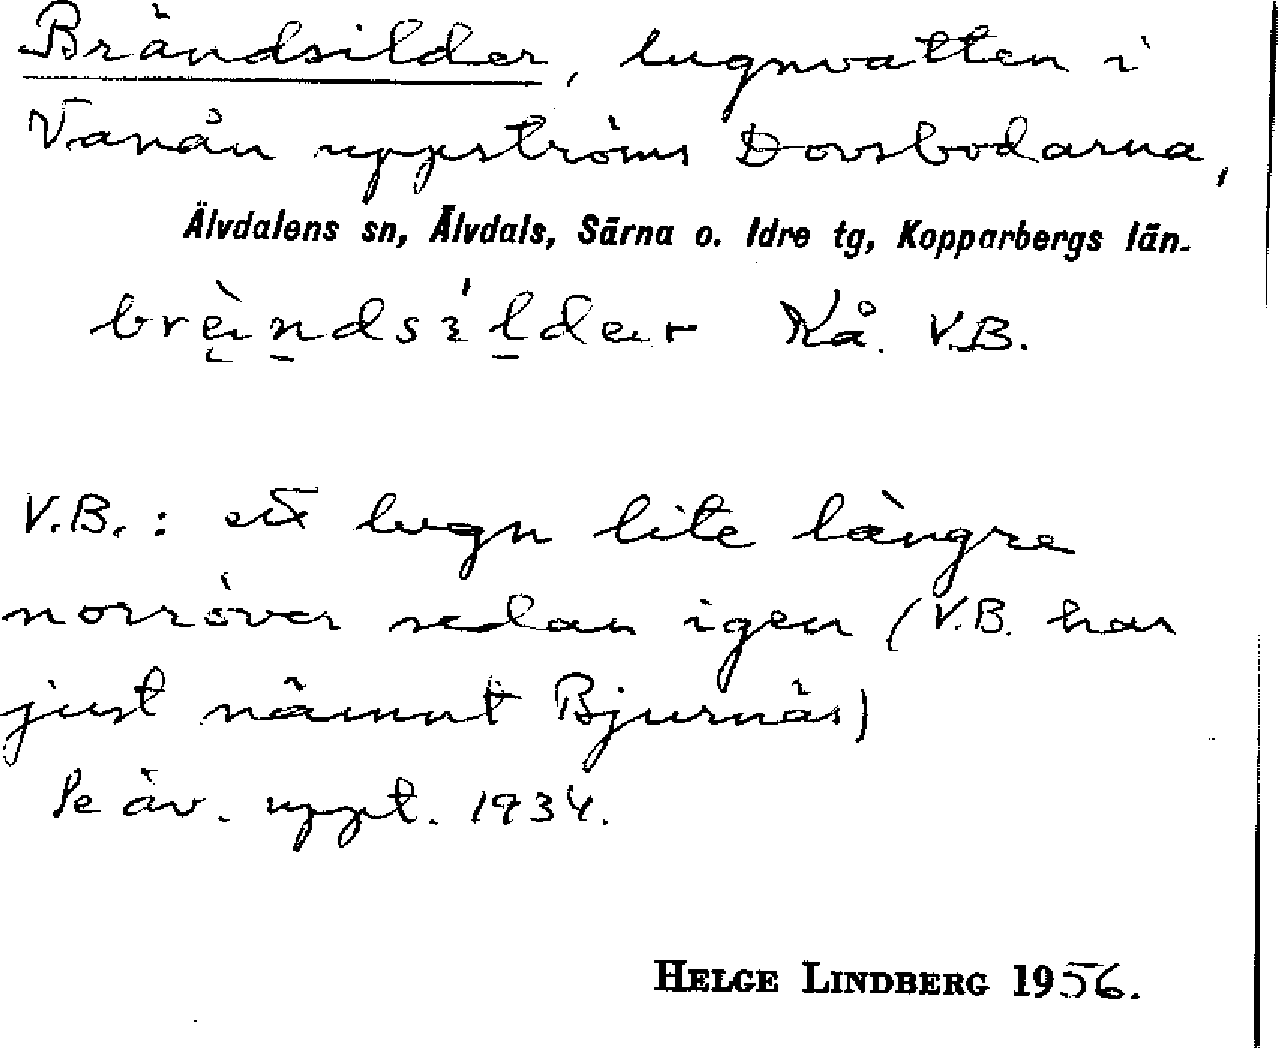 Brändsilder, lugnvatten i
Vanån uppströms Dovsbodarna,
Älvdalens sn, Älvdals, Särna o. Idre tg, Kopparbergs län.
V.B.
V.B.: ett lugn lite längre
norröver sedan igen (V.B. har
just nämnt Bjurnäs)
Se äv. uppt. 1934.
HELGE LINDBERG 1956.